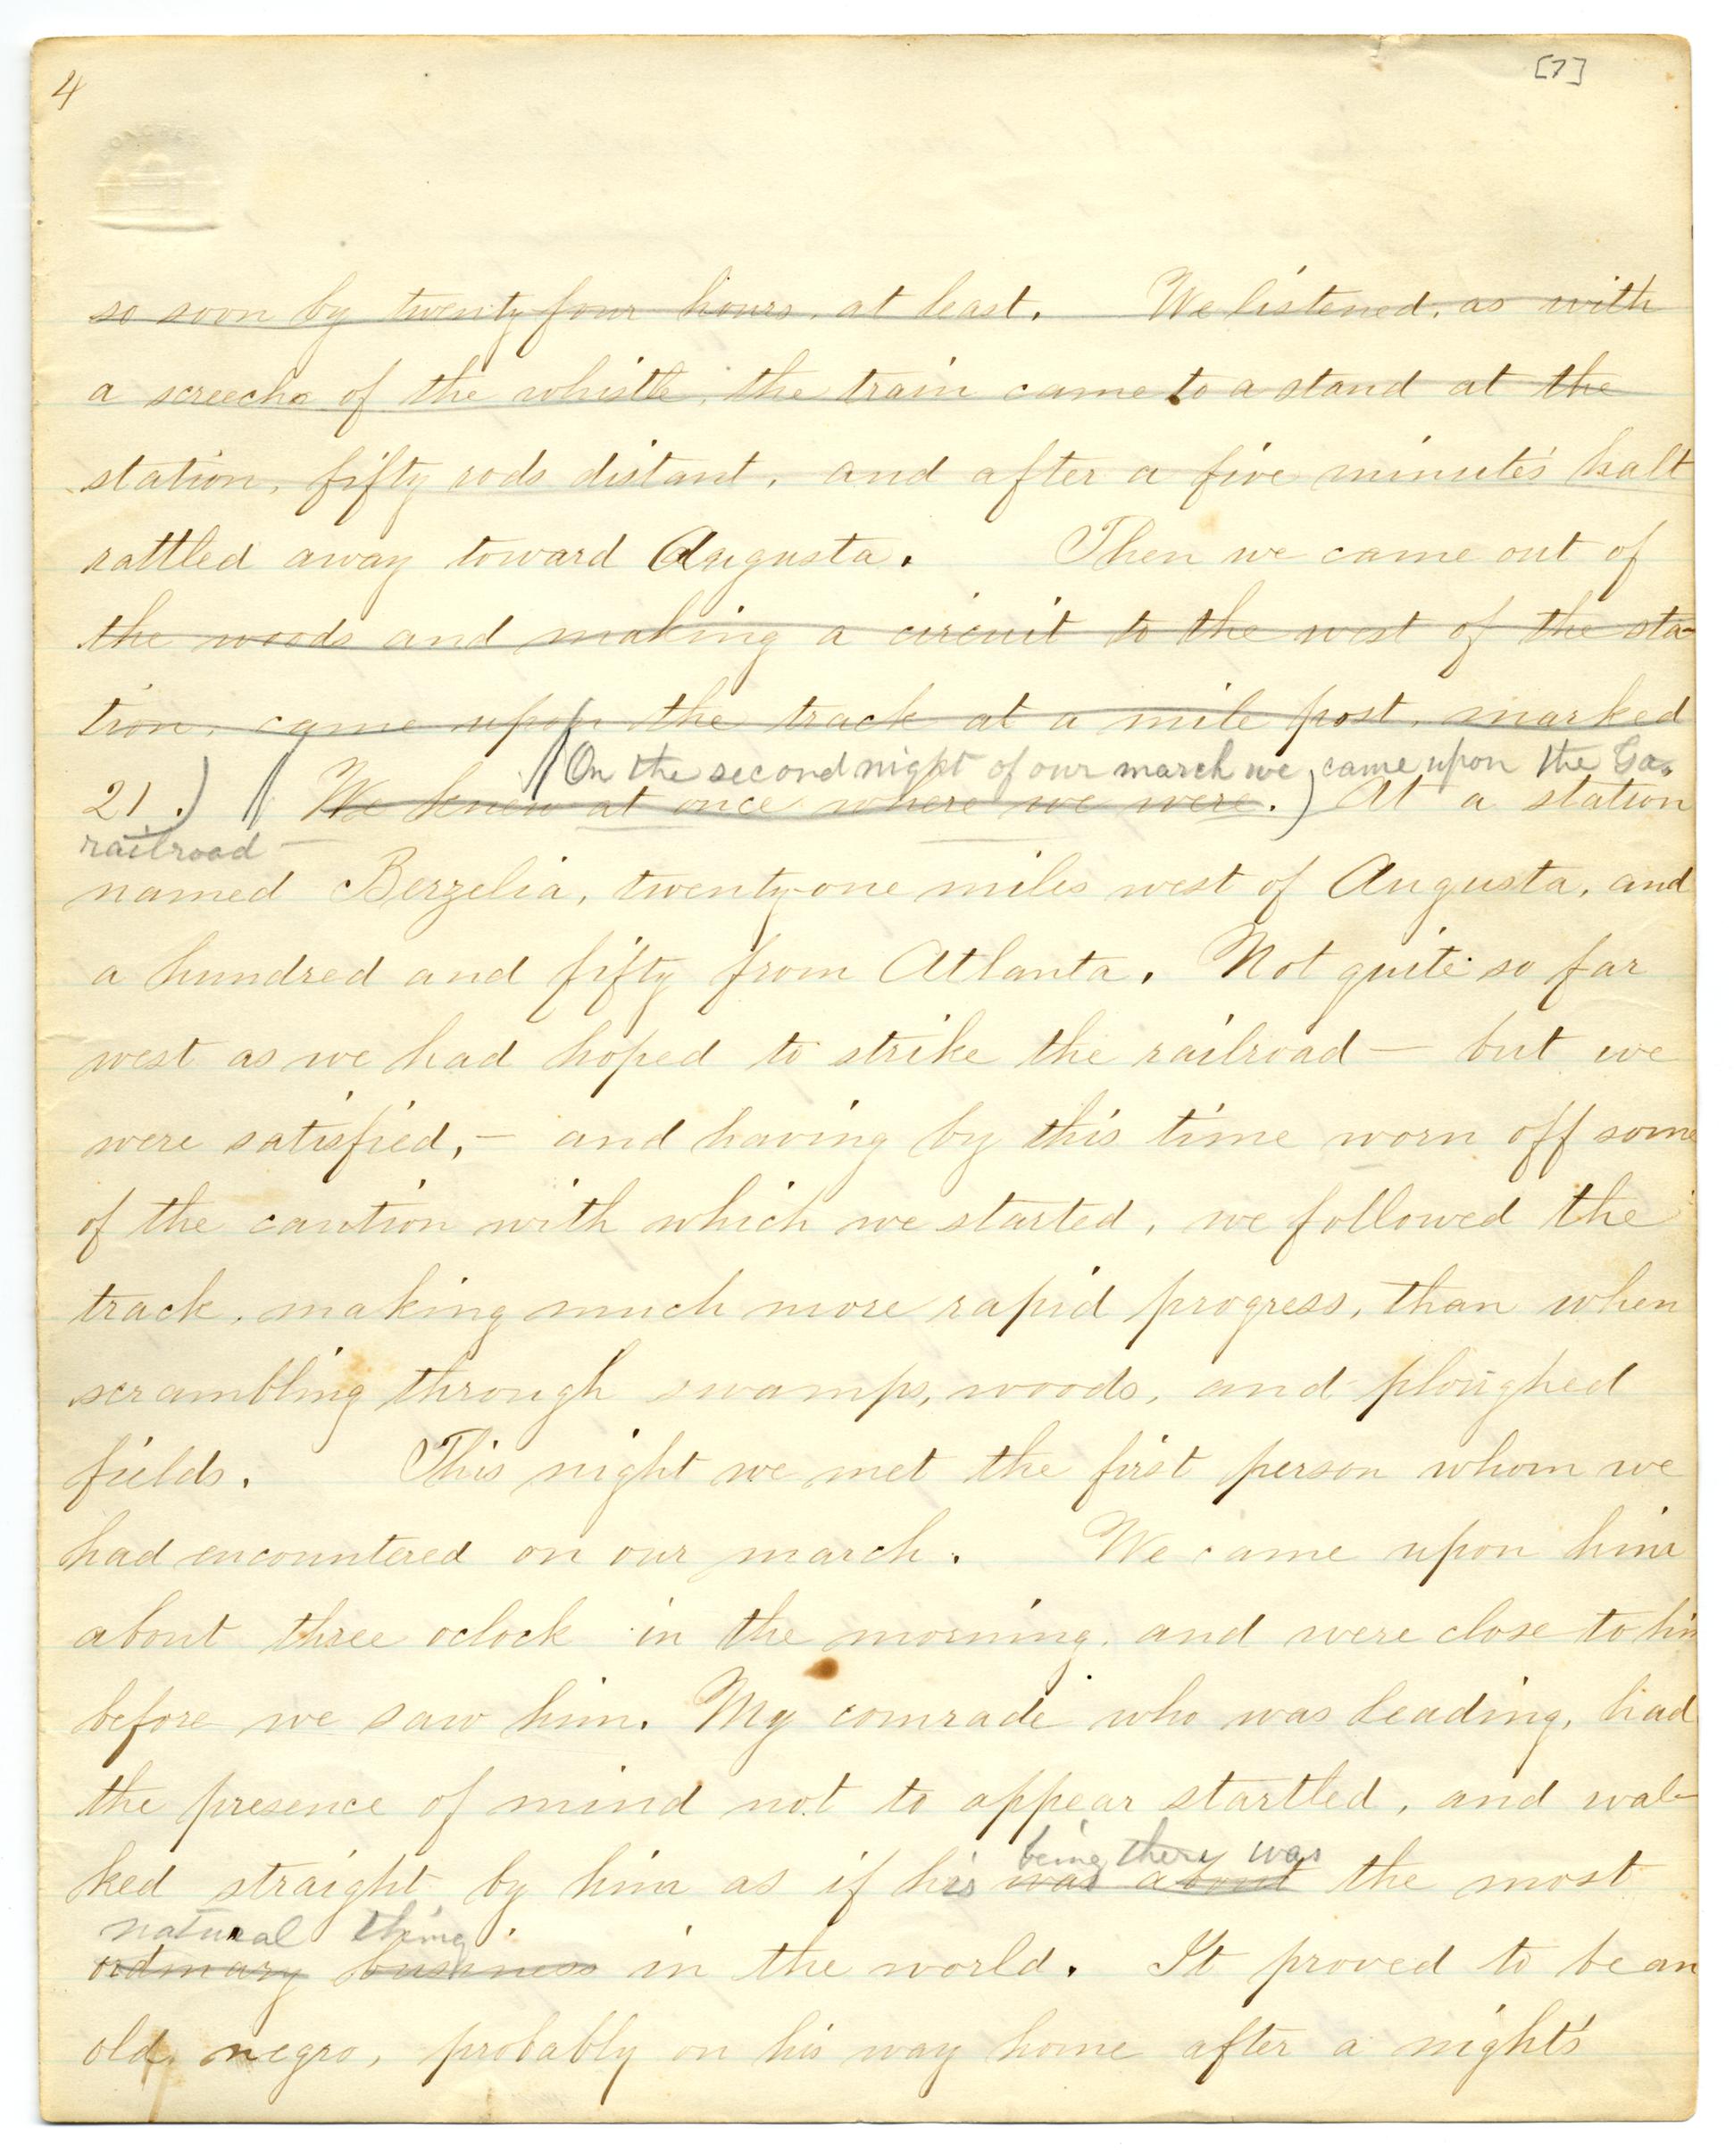 4
[7]
so soon by twenty-four hours, at least. We listened, as with
a screech of the whistle, the train came to a stand at the
station, fifty rods distant, and after a five minute's halt
rattled away toward Augusta. Then we came out of
the woods and making a circuit to the west of the sta-
tion, came upon the track at a mile post, marked
On the second night of our march we came upon the Ga.
21.) We knew at once where we were.) At a station
railroad —
named Berzelia, twenty-one miles west of Augusta, and
a hundred and fifty from Atlanta. Not quite so far
west as we had hoped to strike the railroad — but we
were satisfied, — and having by this time worn off some
of the caution with which we started, we followed the
track, making much more rapid progress, than when
scrambling through swamps, woods, and ploughed
fields. This night we met the first person whom we
had encountered on our march. We came upon him
about three oclock in the morning, and were close to him
before we saw him. My comrade who was leading, had
the presence of mind not to appear startled, and wal-
being there was
ked straight by him as if his was about the most
natural thing
ordinary business in the world. It proved to be an
old negro, probably on his way home after a night's